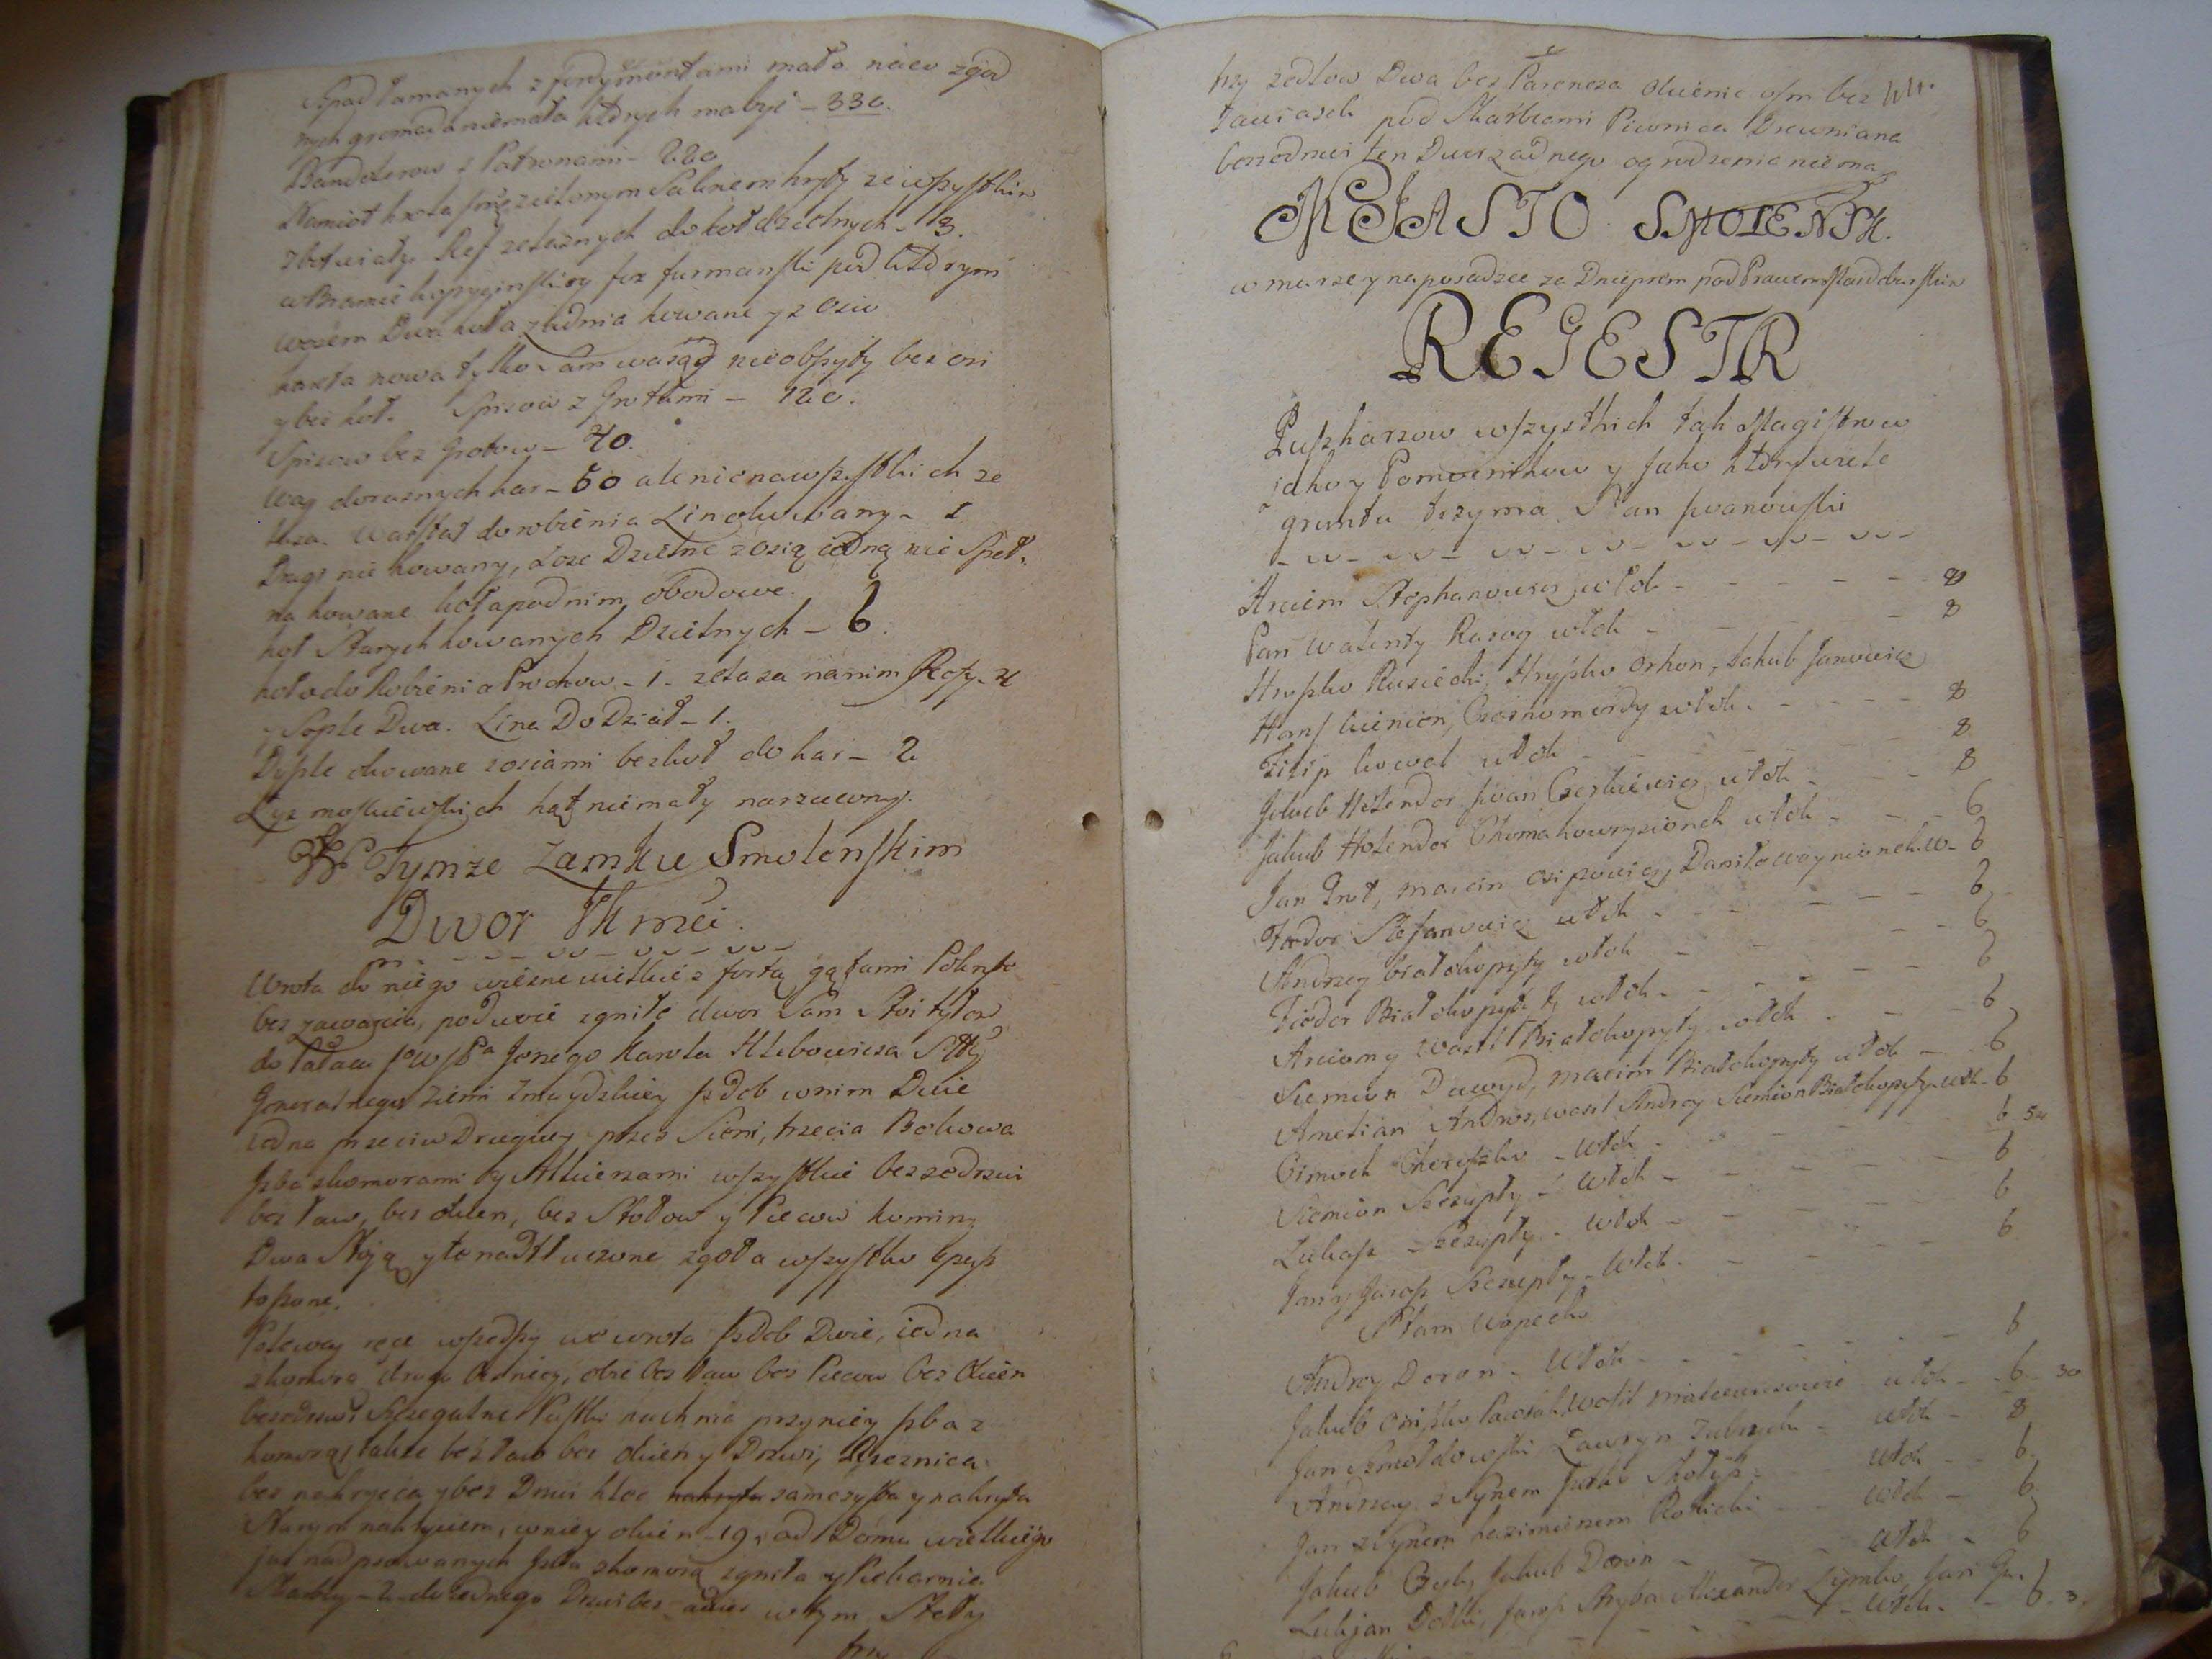 Szpad łamanych z fendymentami mało nieco zgod
nych gromada niemała których ma być – 330.
Bandelerow z Patronami – 220
Namiot krola zielonym Suknem kryty ze wszystkim
zbotwiały. Ref zelaznych do koł dzielnych – 13.
w Bramie kopyginskiey fur furmanski pod ktorym
wozem Dwa koła zadnia kowane y z Osio
kareta nowa tylko sam wasąg nieobszyty bez osi
y bez koł. Spisow z Grotami – 120.
Spisow bez Grotow – 40.
Wag do roznych har – 50 ale nie na wszystkich ze
laza. Warstat do robienia Lin okowany – 1
Drugi nie kowany, Łoze Dzielne z osią iedną nie Speł
na kowane koła pod nim obodowe.
koł Starych kowanych Dzielnych – 6.
koło do Robienia Prochow – 1 – zelaza na nim Rafy – 4
y Sople Dwa. Lina Do Dział – 1.
Dyszle okowane z osiami bez koł do har – 2
Łyz moskiewskich kąt niemały narzucony.
W Tymze Zamku Smolenskim
Dwor JKmci.
Wrota do niego wiezne wielkie z fortą gątami Pokryte
bez zawarcia, poduwie zgniłe dwor Sam Stoi tyłem
do Pałacu Jerzego Karola Hlebowicza Stty
Generalnego Ziemi Zmuydzkiey Izdob w nim Dwie
iedna przeciw Drugiey przez Sieni, trzecia Bokowa
Izba z komorami y Alkierzami wszystkie bez zedrzwi
bez ław, bez okien, bez Stołow y Piecow kominy
Dwa Stoją y te nadtłuczone zgoła wszystko spusz
toszone.
Po lewey ręce wszedszy we wrota Izdob Dwie, iedna
z komorą druga bez niey, obie bez ław bez Piecow bez Okien
bez drzwi Szczegulne Pustki kuchnia przy niey Izba z
komorą także bez ław bez okien y Drzwi, Rzeznica
bez nakrycia y bez Drzwi kloc nakryta zamczysta y nakryta
Starym nakryciem, w niey okien – 19, od Domu wielkiego
iuz nadpsowanych Izba z komorą zgniła y Piekarnia
Skarby – 2 – do iednego Drzwi bez zawias w tym Stoły
trzy
trzy zedlow Dwa bez Parencza okienic osm bez
zawiasek pod Skarbcami Piwnica Drewniana
bez zedrzwi ten Dwor zadnego ogrodzenia nie ma
MIASTO SMOLENSK.
w murze y na posadzce za Dnieprem pod Prawem Maideburskim
REJESTR
Puszkarzow wszystkich tak Magistrow
iako y Pomocnikow y iako ktory wiele
gruntu trzyma Pan Iwanowski
Arciem Stephanowicz włok – 8
Pan Walenty Razog włok – 8
Hryszko Rusiecki, Hryszko Orkon, Jakub Janowicz
Hans kienion, Czarnomordy włok – 8
Filip kowal włok – 8
Jakub Holender Iwan Czerkiewicz włok – 8
Jakub Holender Choma kowryzionek włok – 6
Jan Grot, Marcin Osipowicz Daniło Woynionek w – 6
Fiedor Stefanowicz włok – 6
Andrzey Białokopyty włok – 6
Fiedor Białokopyty włok – 6
Arciomy Wasil Białokopyty włok – 6
Siemion Dawyd, Maxim Białokopyty włok – 6
Amelian Andros, Wasil Andrey Siemion Białokopyty włk – 6
Cimoch Choroszko – włok – 6 54
Siemion Szczupły – włok – 6
Lukasz Szczupły – włok – 6
Jan y Jarosz Szczupły – włok – 6
Adam Wopecki
Andrey Doron – włok – 6
Jakub Osipko Pawluk Wasil Mateuszowie – włok – 6 – 30
Jan Smołdowski Ławryn Zubrycki – włok – 8
Andrzey z Synem Jurko Skołysz – włok – 6
Jan z Synem kazimierzem Rohicki – włok – 6
Jakub Czyk, Jakub Doron – włok – 6
Lukjan Dołbi, Jarosz Ryba Alexander Zienko, Jan Gr.
– włok – 6. 3.